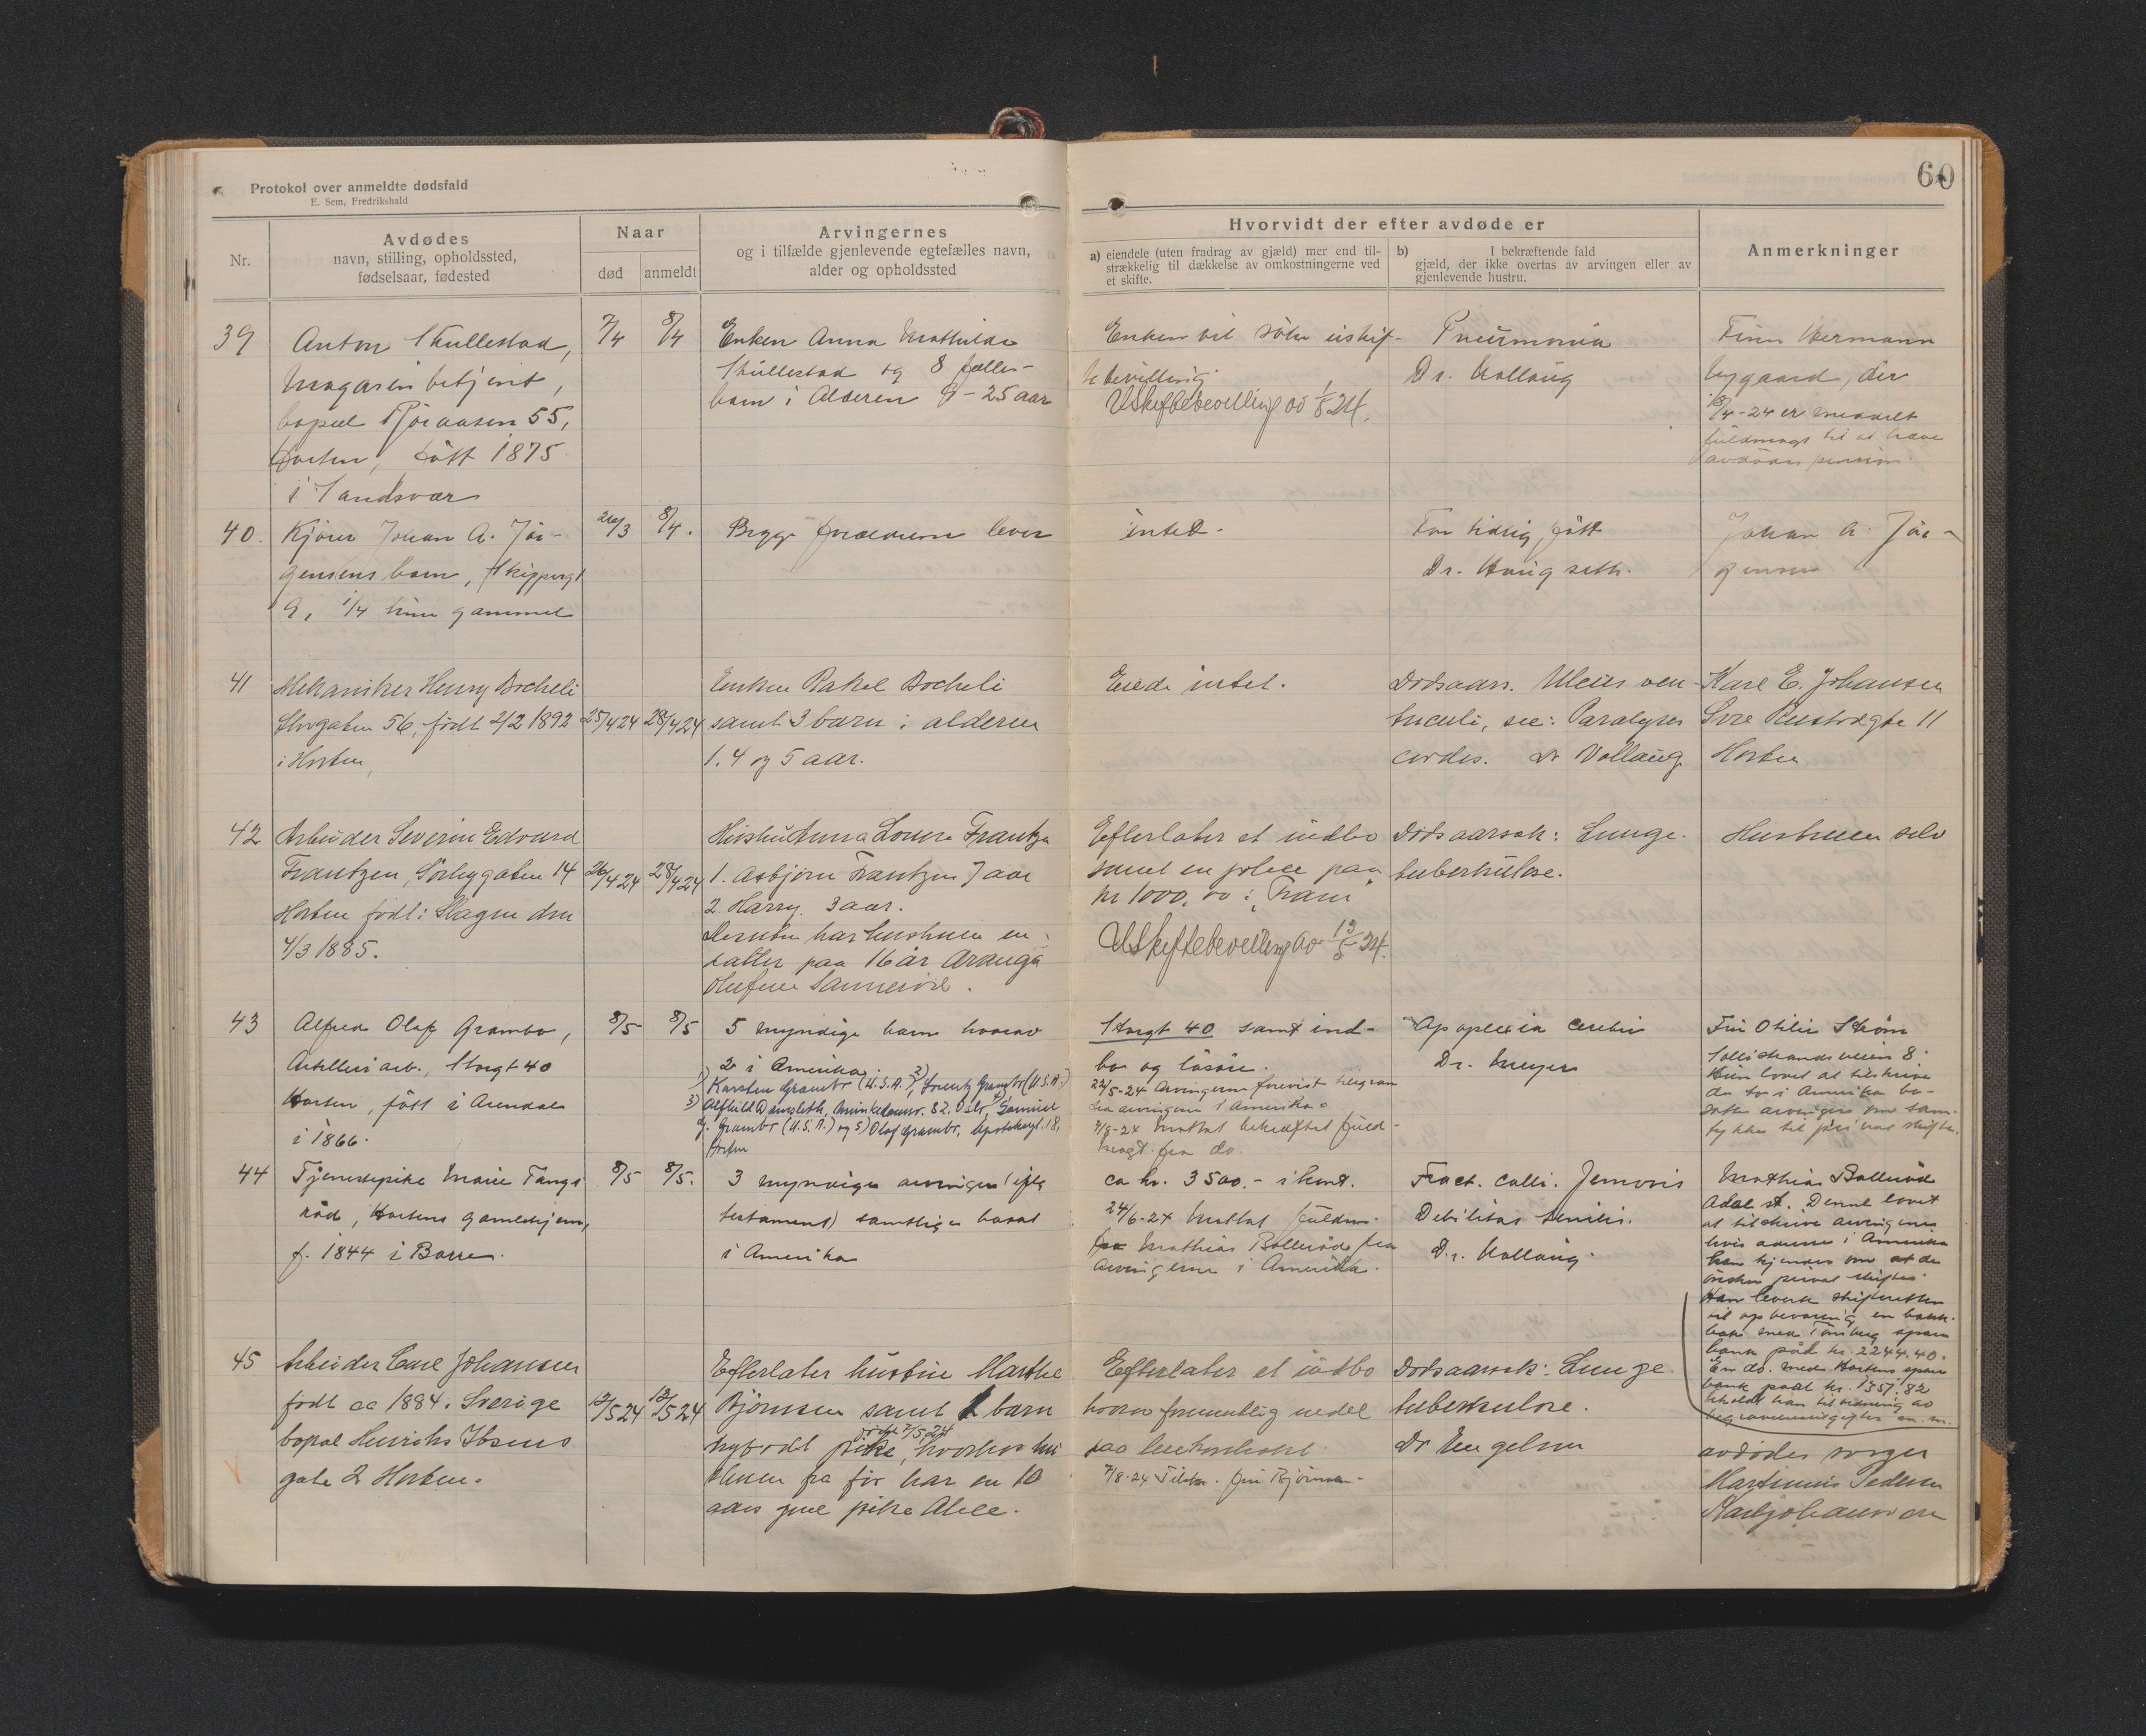 60
Protokol over anmeldte dødsfald
E. Sem, Fredrikshald
Nr.
Avdødes
navn, stilling, opholdssted,
fødselsaar, fødested
Naar
død
anmeldt
Arvingernes
og i tilfælde gjenlevende egtefælles navn,
alder og opholdssted
Hvorvidt der efter avdøde er
a) eiendele (uten fradrag av gjæld) mer end til-
strækkelig til dækkelse av omkostningerne ved
et skifte.
b) I bekræftende fald
gjæld, der ikke overtas av arvingen eller av
gjenlevende hustru.
Anmerkninger
39
Anton Skullestad,
Magasinbetjent,
bopæl Røraasen 55,
Horten, født 1875
i Sandsvær
7/4
8/4
Enken Anna Mathilde
Skullestad og 8 fælles-
barn i Alderen 9 - 25 aar
Enken vil søke uskif-
te bevilling.
Uskiftebevilling av 1/5 24.
Pneumonia
Dr. Vollaug
Finn Hermann
Nygaard, der
/4-24 er meddelt
fuldmagt til at hæve
avdødes pension.
40.
Kjører Johan A. Jør-
gensens barn, Skippergt
9, 1/4 time gammel
26/3
8/4.
Begge forældrene lever
intet.
For tidlig født
Dr. Haugseth.
Johan A. Jør-
gensen
41
Mekaniker Henry Bocheli
Storgaten 56, født 2/2 1892
i Horten
25/4 24
28/4 24
Enken Rakel Bocheli
samt 3 barn i alderen
1. 4 og 5 aar.
Eiede intet.
Dødsaars. Ulcus ven-
triculi, sec: Paralyses
cordis. Dr Vollaug
Karl E. Johansen
11
Horten
42
Arbeider Severin Edvard
Frantzen, Sørbygaten 14
Horten født i Skagen den
4/3 1885.
26/4 24
28/4 24
Hustru Anna Lovise Frantzen
1. Asbjørn Frantzen 7 aar
2. Harry 3 aar.
Desuten har hustruen en
datter paa 16 år
Olufine
Efterlater et indbo
samt en police paa
kr 1000,00 i "Fram"
Uskiftebevilling av 13/5 24.
Dødsaarsak: Lunge-
tuberkulose.
Hustruen selv
43
Alfred Olaf Grambo,
Artilleriarb., Storgt 40
Horten, født i Arendal
i 1866.
8/5
8/5
5 myndige barn hvorav
2 i Amerika.
1) Karsten Grambo (U.S.A.), 2) Lorentz Grambo (U.S.A.)
3) Alfhild Damsleth, Munkedamsv. 82. Oslo, 4) Samuel
G. Grambo (U.S.A.) og 5) Olaf Grambo, Apothekergt. 18,
Horten
Storgt 40 samt ind-
bo og løsøre.
22/5-24 Arvingerne forevist telegram
fra arvingerne i Amerika.
7/8-24 Mottat bekræftet fuld-
magt fra do.
Apoplexia cerebri
Dr. Meyer
Fru Otilie Strøm
Tollistrandsveien 8.
Hun lovet at tilskrive
de to i Amerika bo-
satte arvinger om sam-
tykke til privat skifte.
44
Tjenestepike Marie Fangs
rød, Hortens Gamlehjem,
f. 1844 i Borre.
8/5
8/5.
3 myndige arvinger (efter
testament) samtlige bosat
i Amerika
ca kr. 3500.- i kont.
24/6-24 Mottat fuldm.
fra Mathias Bollerød fra
arvingerne i Amerika.
Fract. colli. femoris
Debilitas senilis.
Dr. Vollaug.
Mathias Bollerød
Adal st. Denne lovet
at tilskrive arvingene
hvis adresse i Amerika
han kjender om at de
ønsker privat skifte.
Han leverte skifteretten
til opbevaring en bank-
bok med Tønsberg spare
bank påd kr. 2244.40.
En do. med Hortens spare
bank pådl kr. 1357.82
beholdt han til ordning av
begravelsesutgifter m.m.
45
Arbeider Carl Johansen
født ca 1884 i Sverige
bopæl Henriks Ibsens
gate 2 Horten.
12/5 24
12/5 24
Efterlater hustru Marthe
Bjørnsen samt 1 barn
født 7/5 24
nyfødt pike, hvorhos hu
struen fra før har en 10
aars gml pike Alice.
Efterlater et indbo
hvorav formentlig endel
paa leiekontrakt.
7/8-24 Tilskr. fru Bjørnsen.
Dødsaarsak: Lunge
tuberkulose.
Dr Engelsen
avdødes svoger
Martinius Pedersen
Karljohansvern